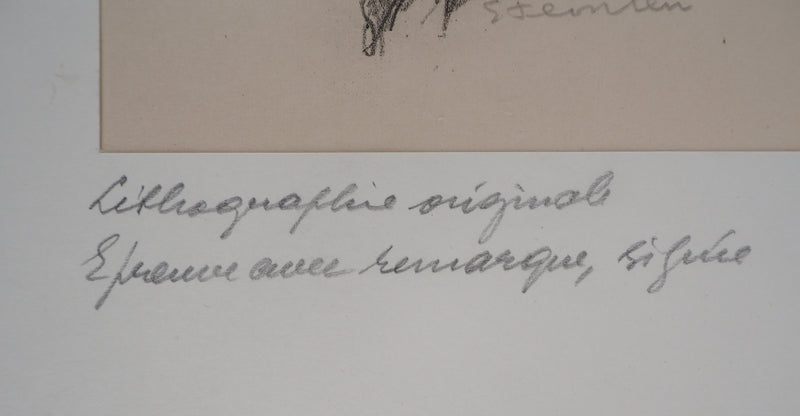 Steinlen
Lithographie originale
Epreuve avec remarque, signée